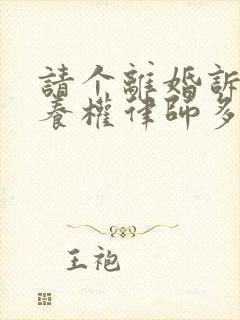 請个離婚訴
養權律師多
王袍